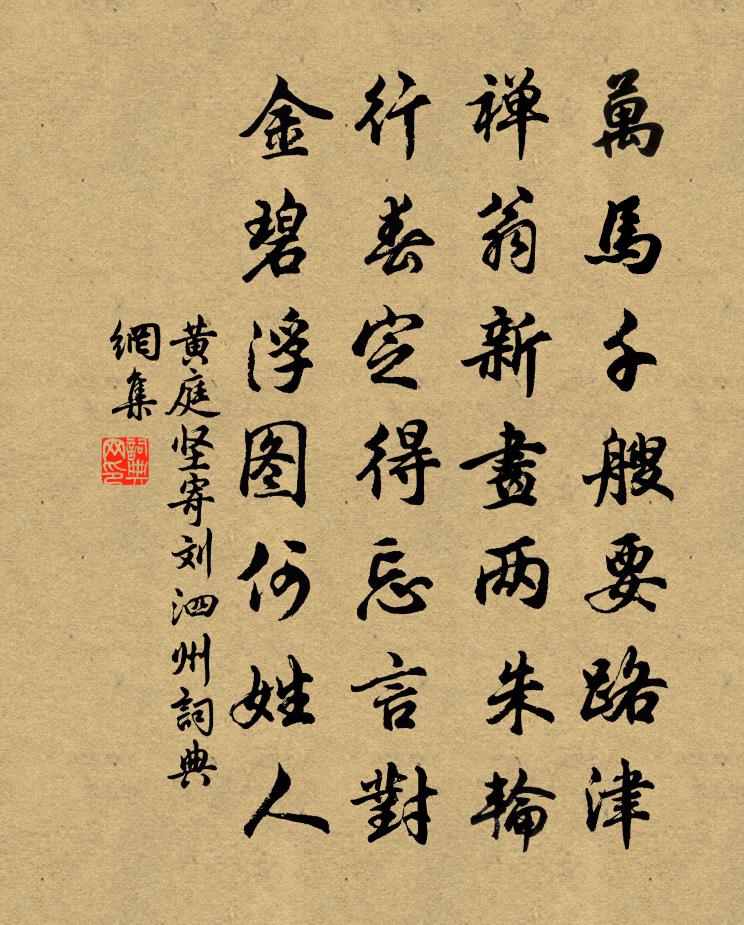 萬馬千艘要路津
禅翁新畫两朱輪
行春定得忘言對
金碧浮图何姓人
黄庭坚寄刘泗州詞典
網集
詞典
网印